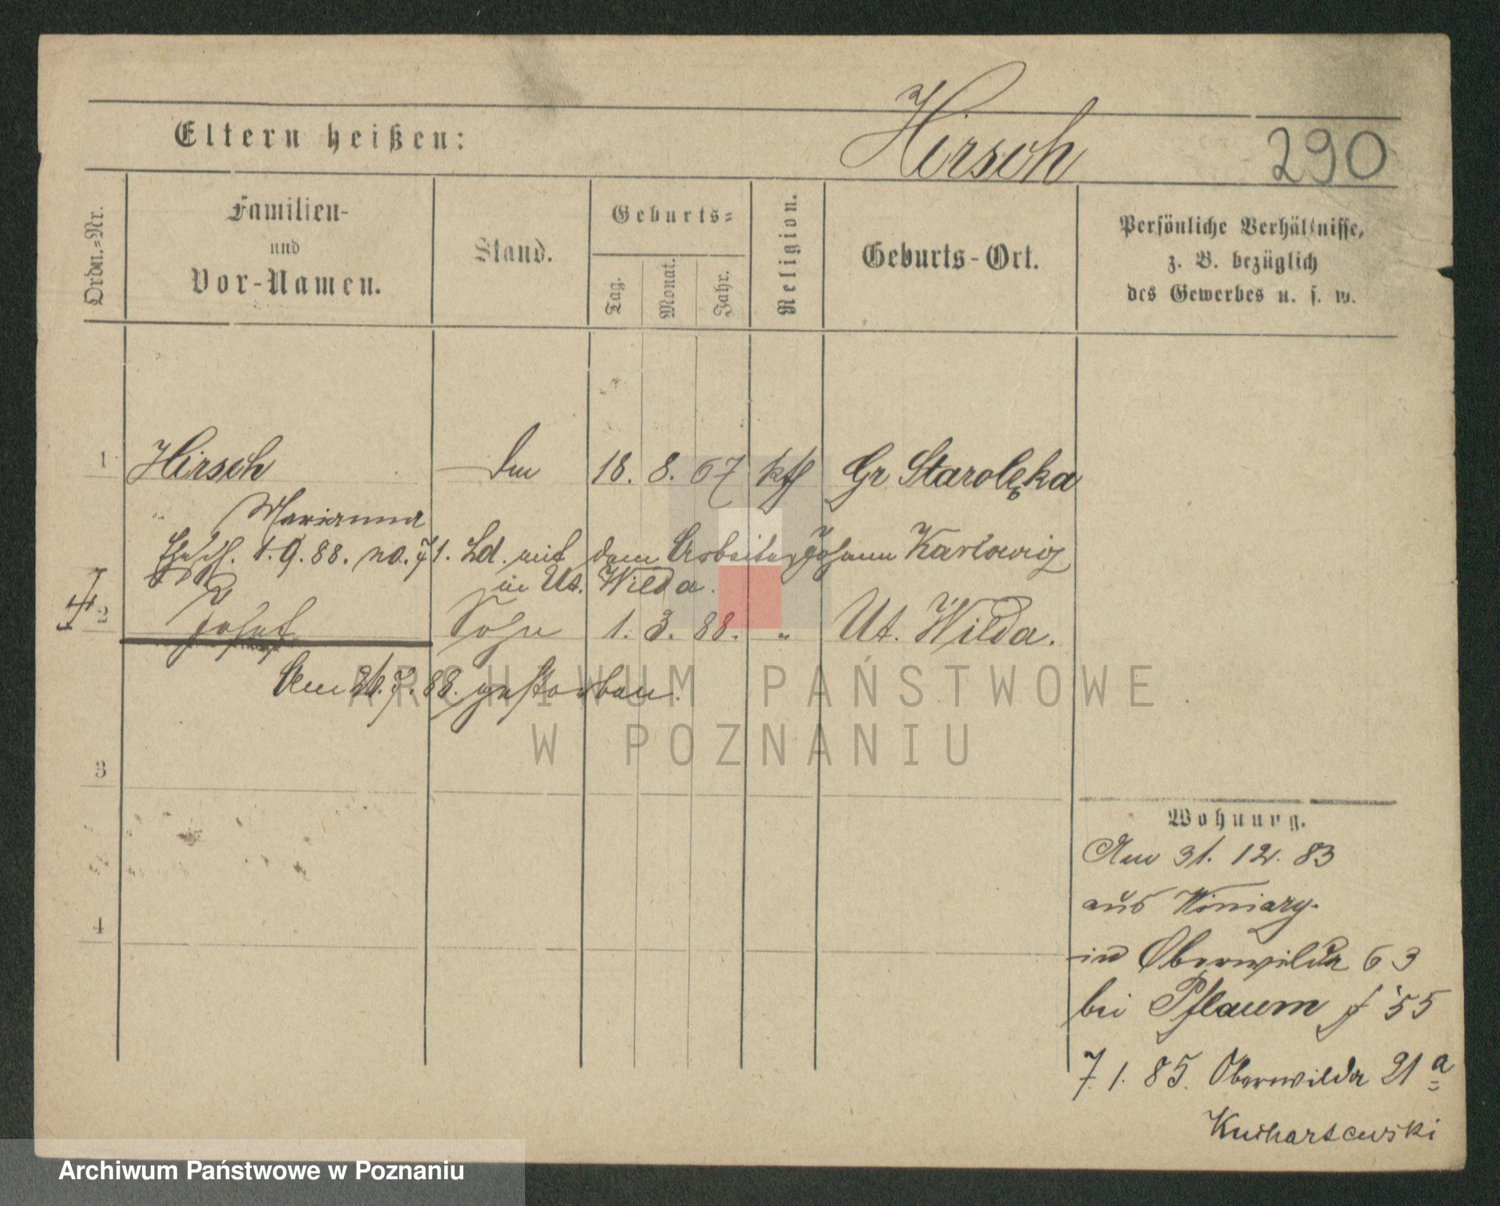 Hirsch 290
Eltern heißen:
Ordn.=Nr. Familien- und Vor-Namen. Stand. Geburts= Tag. Monat. Jahr. Religion. Geburts-Ort. Persönliche Verhältnisse, z. B. bezüglich des Gewerbes u. s. w.
1 Hirsch 18. 8. 67 kth Gr Starolęka
Marianna
1. 9. 88. no. 71. Ld. mit dem Arbeiter Johann Karlowicz
in Ut. Wilda.
2 Josef Sohn 1. 3. 88. " Ut. Wilda.
Am 26. 7. 88. gestorben.
3
4
Wohnung.
Am 31. 12. 83
aus Winiary.
in Oberwilda 63
bei Pflaum f 55
7. 1. 85. Oberwilda 21 a
Kucharzewski
ARCHIWUM PAŃSTWOWE
W POZNANIU
Archiwum Państwowe w Poznaniu